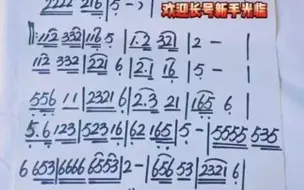 欢迎长号新手光临
2222 216 | 5 - - ) |
‖: 112 332 | 116 5 | 1.2 321 | 2 - |
112 332 | 221 6 | 2.1 16 | 5 - |
556 11 | 2321 6 | 2.3 21 | 165 6 |
5.6 123 | 523 16 | 62 165 | 5 - | 5555 535
6 6653 | 6666 6553 | 2 - | 656 53 | 2321 6